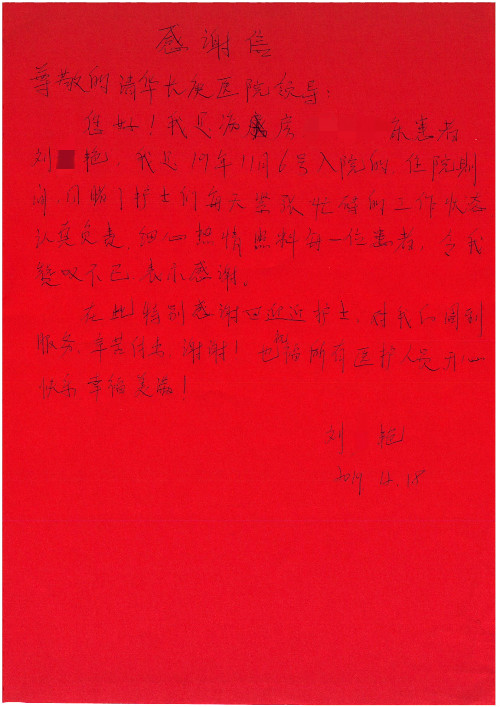 感谢信
尊敬的清华长庚医院领导：
您好！我是病房 床患者
刘 艳，我是19年11月6号入院的，住院期
间，目睹了护士们每天紧张忙碌的工作状态
认真负责，细心热情照料每一位患者，令我
赞叹不已，表示感谢。
在此特别感谢 护士，对我的周到
服务，辛苦付出，谢谢！也祝所有医护人员开心
快乐幸福美满！
刘 艳